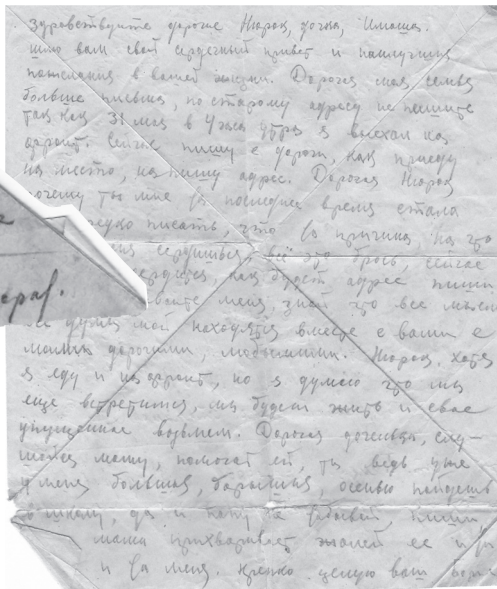 Здравствуйте дорогие Нюрок, дочка, Имоша.
шлю вам свой сердечный привет и наилучшие
пожелания в вашей жизни. Дорогая моя семья
больше письма, по старому адресу не пишите
так как 31 мая в 4 часа утра я выехал на
фронт. Сейчас пишу с дороги, как приеду
на место, напишу адрес. Дорогая Нюрок
почему ты мне за последнее время стала
редко писать, что за причина на что
сердишься, всё это брось, сейчас
сердится, как будет адрес пиши
меня, знай что все мысли
и думы мои находятся вместе с вами с
моими дорогими, любимыми. Нюрок, хотя
я еду и на фронт, но я думаю что мы
еще встретимся, мы будем жить и свое
упущенное возьмем. Дорогая доченька, слу-
шайся маму, помогай ей, ты ведь уже
у меня большая, барышня, осенью пойдешь
в школу, да и папу не забывай, пиши
мама прихварывает жалей ее и
и за меня. крепко целую ваш
ерал.